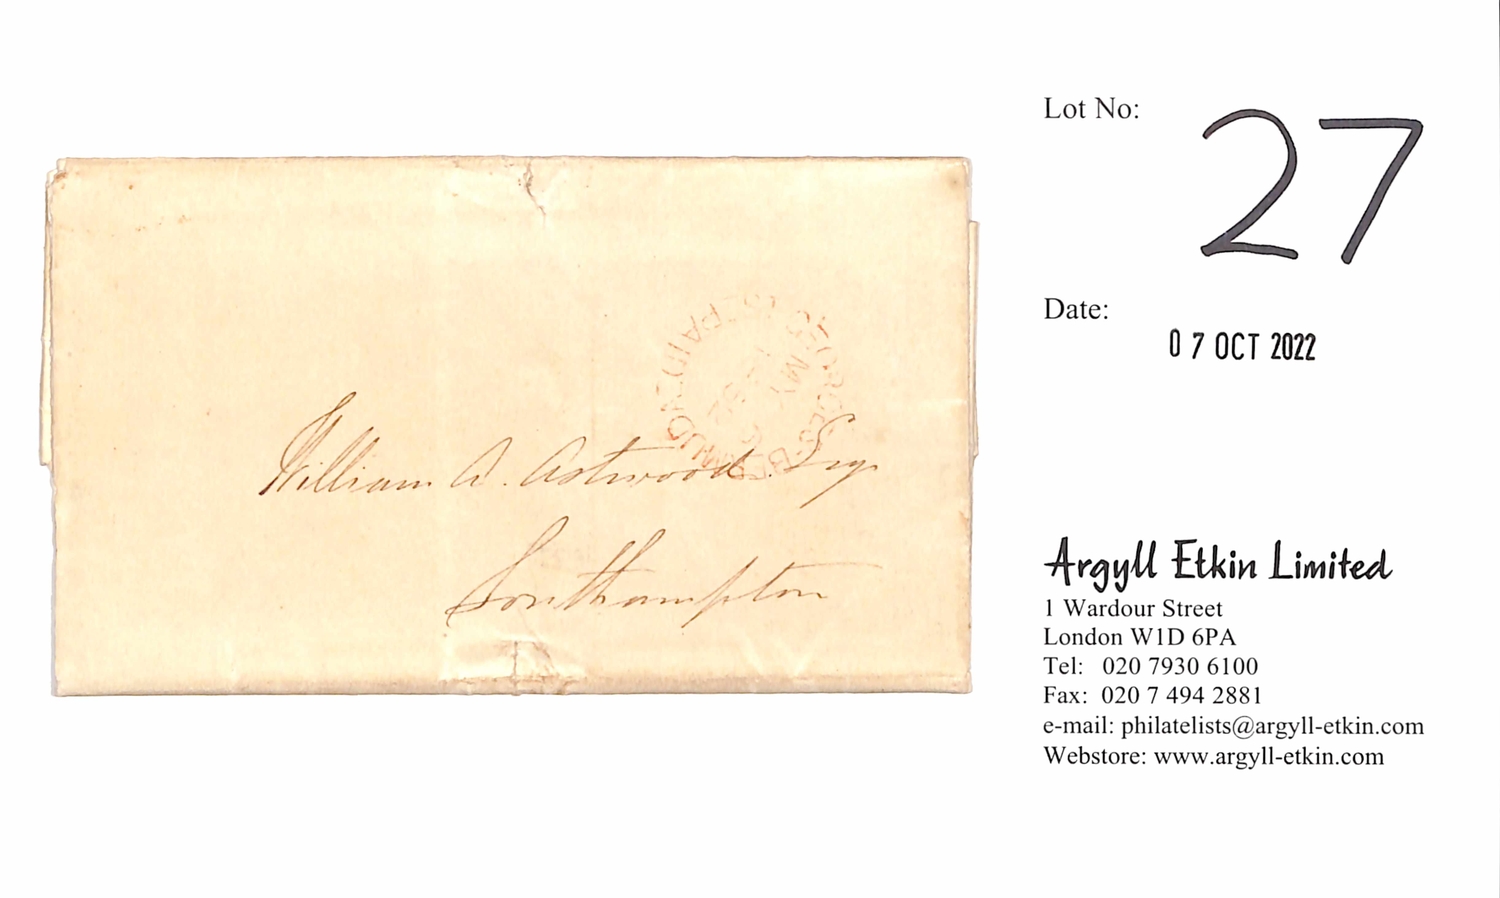 William A. Astwood Esq
Southampton
PAID
Lot No: 27
Date:
07 OCT 2022
Argyll Etkin Limited
1 Wardour Street
London W1D 6PA
Tel: 020 7930 6100
Fax: 020 7 494 2881
e-mail: philatelists@argyll-etkin.com
Webstore: www.argyll-etkin.com